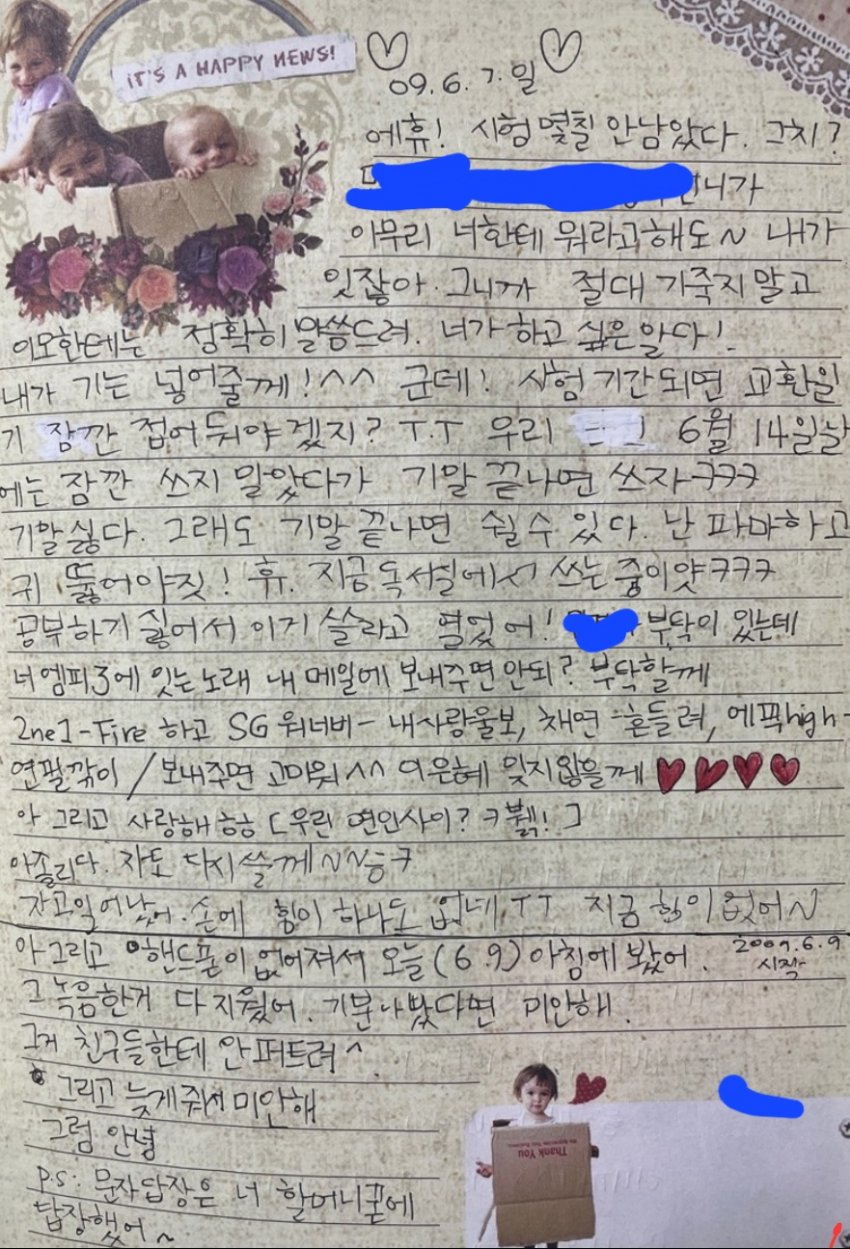 IT'S A HAPPY NEWS!
09. 6. 7. 일
에휴! 시험 몇칠 안남았다. 그치?
니가
아무리 너한테 뭐라고해도~ 내가
있잖아. 그니까 절대 기죽지말고
이모한테는 정확히 말씀드려. 너가 하고 싶은말다!
내가 기는 넣어줄께! ^^ 군데! 시험기간되면 교환일
기 잠깐 접어둬야겠지? T.T 우리 6월 14일날
에는 잠깐 쓰지 말았다가 기말 끝나면 쓰자ㅋㅋㅋ
기말싫다. 그래도 기말 끝나면 쉴수 있다. 난 파마하고
귀 뚫어야짓! 휴. 지금독서실에서 쓰는중이얏ㅋㅋㅋ
공부하기 싫어서 이거 쓸라고 열었어! 부탁이 있는데
너 엠피3에 있는노래 내 메일에 보내주면안되? 부탁할께
2ne1-Fire 하고 SG워너비- 내사랑울보, 채연-흔들려, 에픽high-
연필깎이 / 보내주면 고마워^^ 이은혜 잊지않을께
아 그리고 사랑해 [우린 연인사이? ㅋ뷁!]
아졸리다. 자도 다시쓸께~~응ㅋ
자고일어났어. 손에 힘이 하나도 없네 TT 지금 힘이없어~
아 그리고 핸드폰이 없어져서 오늘(6.9)아침에 봤어. 2009.6.9
시작
그 녹음한거 다 지웠어. 기분나빴다면 미안해.
그거 친구들한테 안퍼트려^
그리고 늦게줘서 미안해
그럼 안녕
P.S. 문자답장은 너 할머니폰에
답장했어~
Thank You